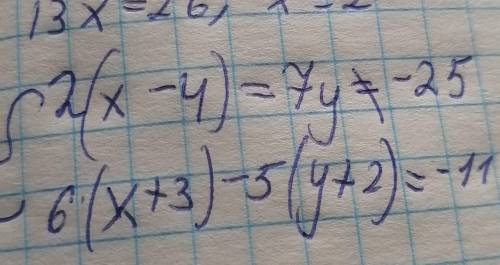 13x = 26, x = 2
2(x - 4) = 7y ≠ -25
6·(x + 3) - 5(y + 2) = -11